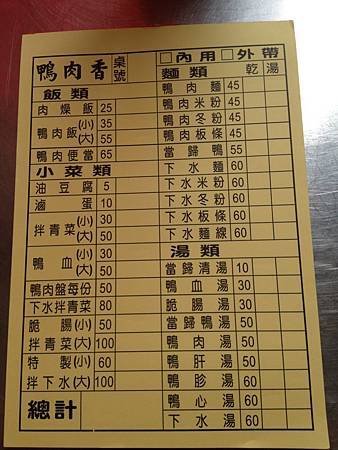 鴨肉香 桌號
飯類
肉燥飯 25
鴨肉飯(小) 35
(大) 55
鴨肉便當 65
小菜類
油豆腐 5
滷蛋 10
拌青菜(小) 30
(大) 50
鴨血(小) 30
(大) 50
鴨肉盤每份 50
下水拌青菜 80
脆腸(小) 50
拌青菜(大) 100
特製(小) 60
拌下水(大) 100
總計
□內用 □外帶
麵類 乾 湯
鴨肉麵 45
鴨肉米粉 45
鴨肉冬粉 45
鴨肉板條 45
當歸鴨 55
下水麵 60
下水米粉 60
下水冬粉 60
下水板條 60
下水麵線 60
湯類
當歸清湯 10
鴨血湯 30
脆腸湯 30
當歸鴨湯 50
鴨肉湯 50
鴨肝湯 50
鴨胗湯 60
鴨心湯 60
下水湯 60